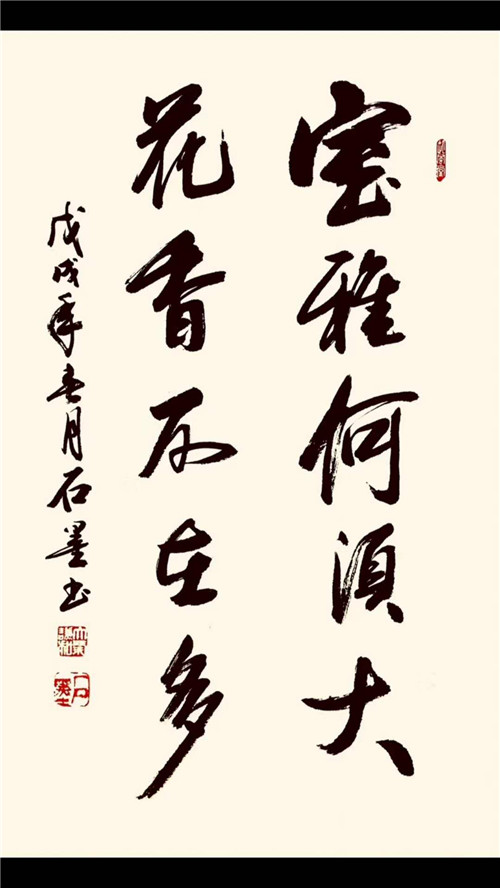 室雅何須大
花香不在多
戊戌年春月石墨书